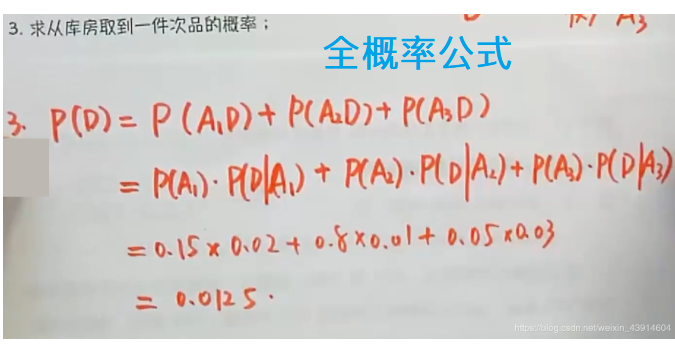 3. 求从库房取到一件次品的概率；
A3
全概率公式
3. P(D) = P(A₁D) + P(A₂D) + P(A₃D)
= P(A₁)·P(D|A₁) + P(A₂)·P(D|A₂) + P(A₃)·P(D|A₃)
= 0.15×0.02 + 0.8×0.01 + 0.05×0.03
= 0.0125.
https://blog.csdn.net/weixin_43914604